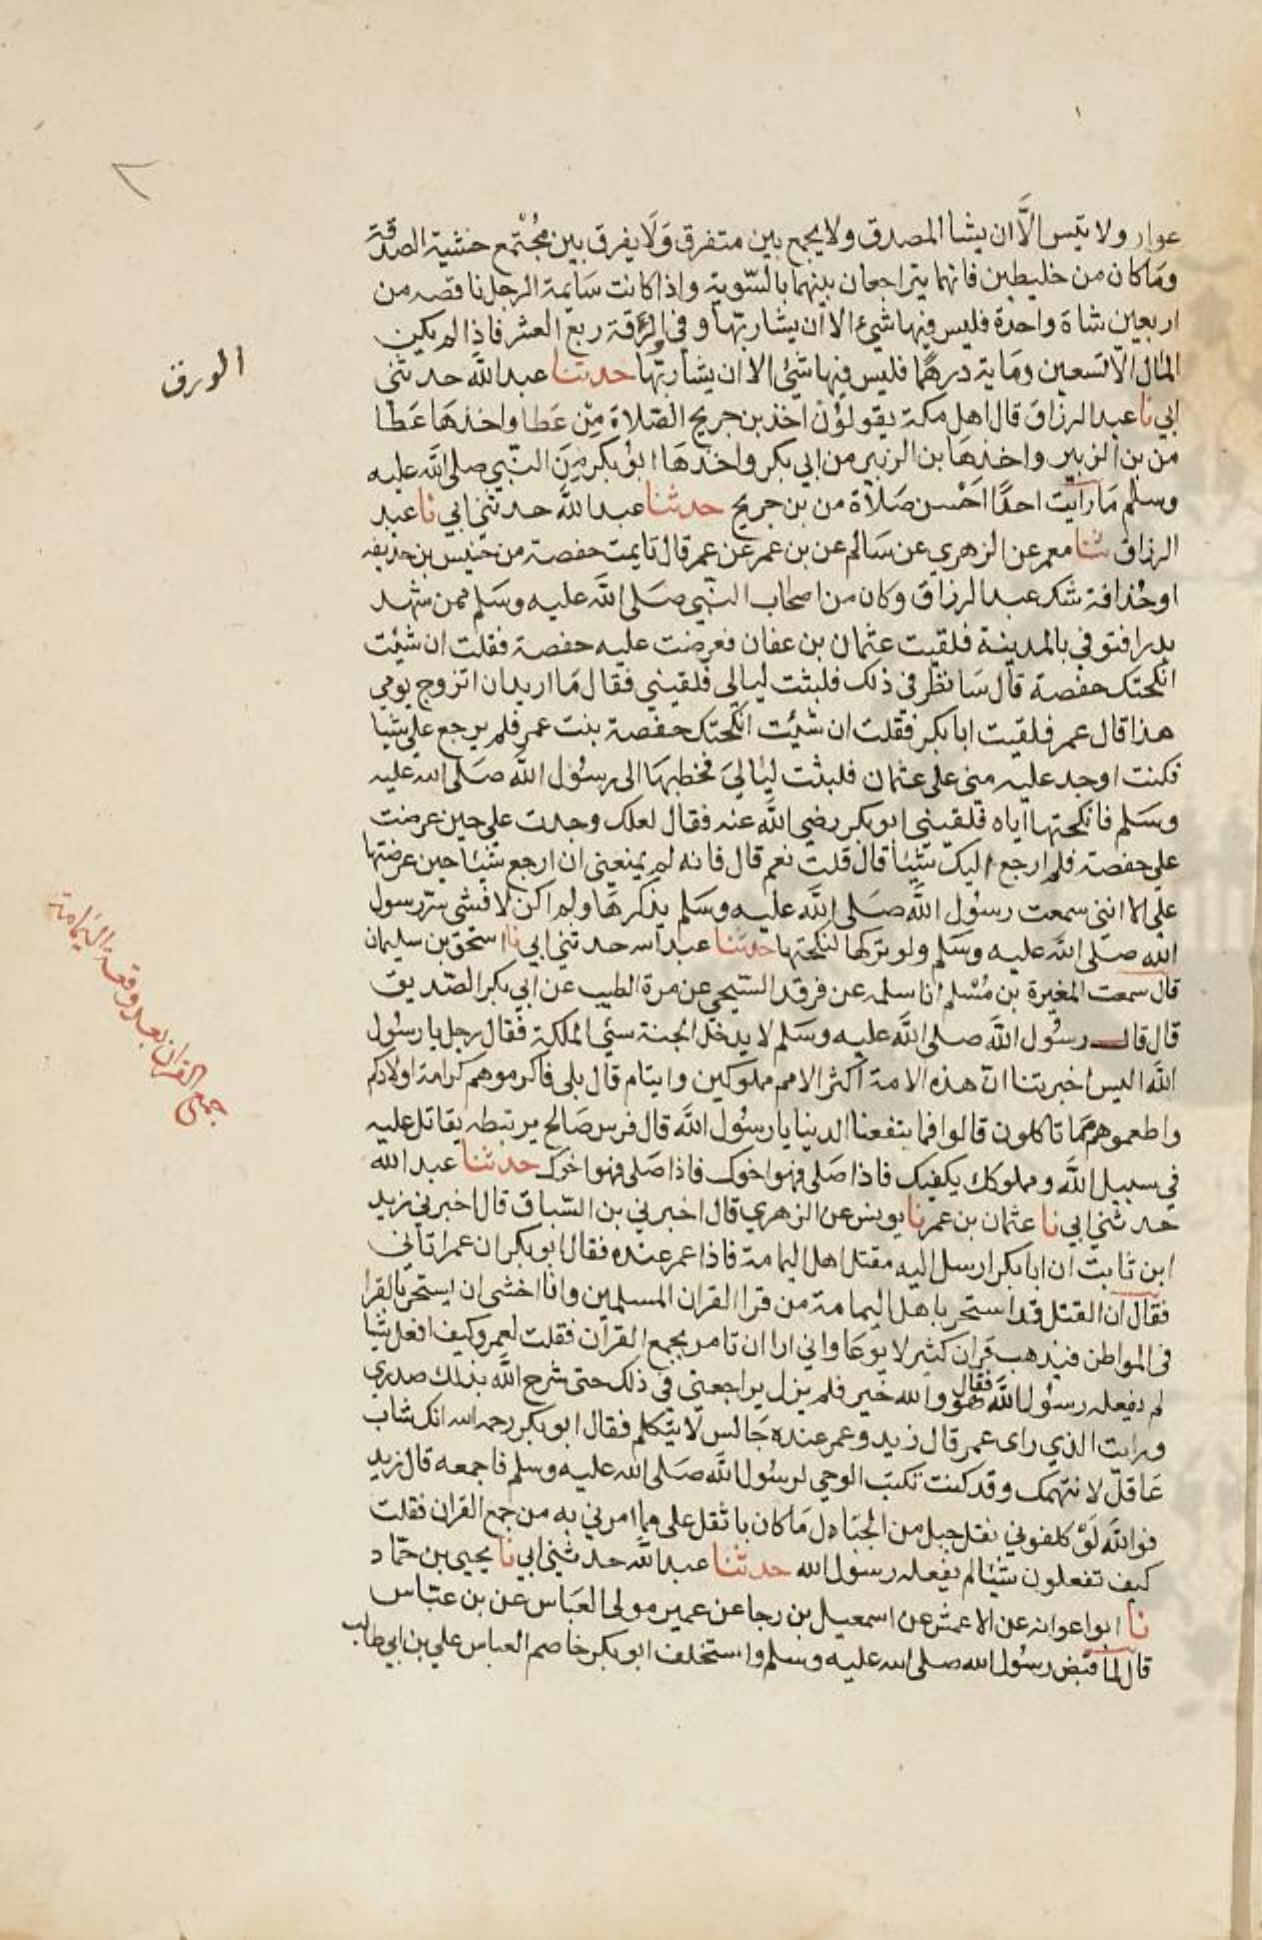 عوار ولا تيس الّا ان يشا المصدق ولا يجمع بين متفرق وَلَا يفرق بين مُجْتَمع خشية الصدَقة
ومَا كان من خليطين فانهما يتراجعان بينهما بالسّوية واذا كانت سَايمة الرجل ناقصه من
اربعين شاة واحدة فليس فيها شيء الا ان يشا ربّها وفى الرقة ربع العشر فاذا لم يكن
المال الّا تسعين ومَاية درهمًا فليس فيها شئ الا ان يشا ربّها حدثنا عبد الله حدثني
ابي نا عبد الرزاق قال اهل مكة يقولوُن اخذ بن جريج الصّلاة مِنْ عَطا واخذهَا عَطا
من بن الزبير واخذهَا بن الزبير من ابي بكر واخذهَا ابوُ بكر مِنَ النّبي صلى الله عليه
وسلم مَا رايت احدًا احْسن صَلاة من بن جريج حدثنا عبد الله حدثني ابي نا عبد
الرزاق ثنا معمر عن الزهري عن سَالم عن بن عمر عن عمر قال تايمت حفصة من خنيس بن حذيفه
او حُذافة شك عبد الرزاق وكان من اصحاب النّبي صَلى الله عليه وسَلم ممن شهد
بدرا فتوفي بالمدينة فلقيت عثمان بن عفان فعرضت عليه حفصة فقلت ان شئت
انكحتك حفصة قال سَانظر في ذلك فلبثت ليالي فلقيني فقال مَا اريد ان اتزوج يومي
هذا قال عمر فلقيت ابا بكر فقلت ان شئت انكحتك حفصة بنت عمر فلم يرجع علي شيا
فكنت اوجد عليه مني على عثمان فلبثت ليٰاليَ فخطبهَا الى رسوُل الله صَلى الله عليه
وسَلم فانكحتها اياه فلقيني ابو بكر رضي الله عنه فقال لعلك وجدت علي حين عرضت
علي حفصة فلم ارجع اليك شئًا قال قلت نعم قال فانه لم يمنعني ان ارجع شئًا حين عرضتها
علي الا انني سمعت رسوُل الله صَلى الله عليه وسَلم يذكرهَا ولم اكن لافشي سرّ رسول
الله صلى الله عليه وسَلم ولو تركها لنكحتها حدثنا عبد الله حدثني ابي نا اسحق بن سليمان
قال سمعت المغيرة بن مُسْلم انا سلمه عن فرقد السّبخي عن مرة الطيب عن ابي بكر الصّديق
قال قال رسوُل الله صلى الله عليه وسَلم لا يدخل الجنة سئ الملكة فقال رجل يا رسوُل
الله اليس اخبرتنا انّ هذه الامة اكثر الامم مملوكين وايتام قال بلى فاكرموهم كرامة اولادكم
واطعموهم ممّا تاكلون قالوا فما ينفعنا الدنيا يا رسوُل الله قال فرس صَالح يرتبطه يقاتل عليه
في سبيل الله ومملوكك يكفيك فاذا صَلى فهو اخوك فاذا صَلى فهو اخوك حدثنا عبد الله
حدثني ابي نا عثمان بن عمر نا يونس عن الزهري قال اخبرني بن السّباق قال اخبرني زيد
ابن ثابت ان ابا بكر ارسل اليه مقتل اهل اليمامة فاذا عمر عنده فقال ابو بكر ان عمر اتاني
فقال ان القتل قد استحر باهل اليمامة من قرا القران المسلمين وانا اخشى ان يستحر بالقرا
في المواطن فيذهب قران كثير لا يوعَا واني ارا ان تامر بجمع القرآن فقلت لعمر وكيف افعل شيا
لم يفعله رسوُل الله فقال هوَ والله خير فلم يزل يراجعني في ذلك حتى شرح الله بذلك صدري
ورايت الذي راى عمر قال زيد وعمر عنده جَالس لا يتكلم فقال ابو بكر رحمه الله انك شاب
عَاقلّ لا نتهمك وقد كنت تكتب الوحي لرسوُل الله صَلى الله عليه وسلم فاجمعه قال زيد
فوالله لَوْ كلفوني نقل جبل من الجبَال مَا كان باثقل على مما امرني به من جمع القران فقلت
كيف تفعلون شئًا لم يفعله رسول الله حدثنا عبد الله حدثني ابي نا يحيى بن حمّاد
نا ابوا عوانه عن الاعمش عن اسمعيل بن رجا عن عمير مولى العَباس عن بن عبّاس
قال لما قبض رسوُل الله صلى الله عليه وسلم واستخلف ابو بكر خاصم العباس علي بن ابي طالب
الورق
جمع القران بعد وقعة اليَمامة